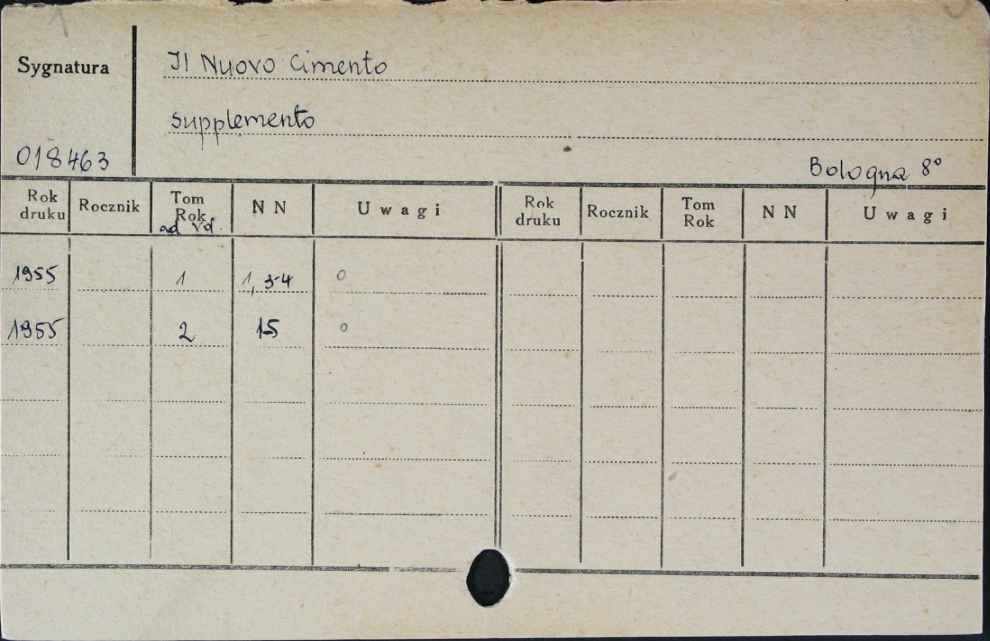 Sygnatura
Il Nuovo Cimento
supplemento
018463
Bologna 8°
Rok druku Rocznik Tom Rok N N Uwagi Rok druku Rocznik Tom Rok N N Uwagi
ad Vol.
1955 1 1, 3-4 o
1955 2 1-5 o